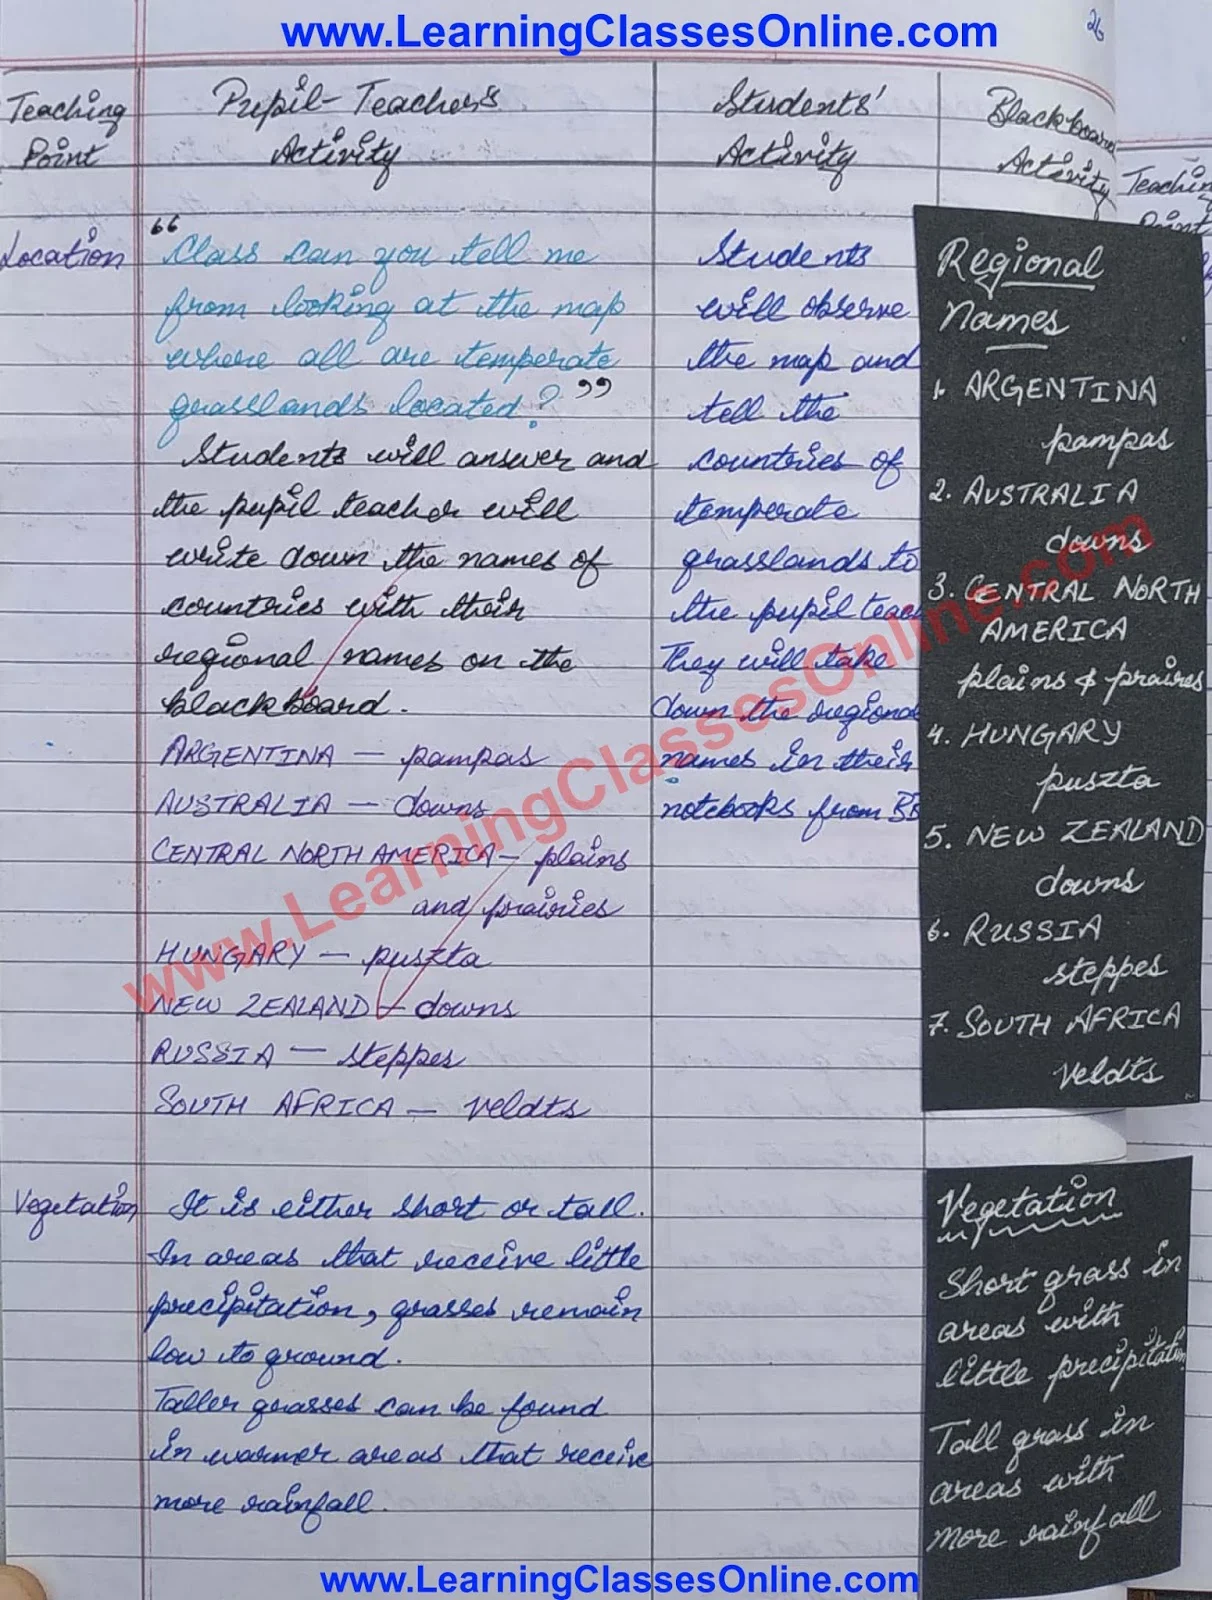 www.LearningClassesOnline.com
26
Teaching
Point
Pupil-Teacher's
Activity
Students'
Activity
Blackboard
Activity
Teaching
Point
Location
"Class can you tell me
from looking at the map
where all are temperate
grasslands located?"
Students will answer and
the pupil teacher will
write down the names of
countries with their
regional names on the
blackboard.
ARGENTINA — pampas
AUSTRALIA — downs
CENTRAL NORTH AMERICA — plains
and prairies
HUNGARY — puszta
NEW ZEALAND — downs
RUSSIA — steppes
SOUTH AFRICA — veldts
Students
will observe
the map and
tell the
countries of
temperate
grasslands to
the pupil teac
They will take
down the regional
names in their
notebooks from BB
Regional
Names
1. ARGENTINA
pampas
2. AUSTRALIA
downs
3. CENTRAL NORTH
AMERICA
plains & praires
4. HUNGARY
puszta
5. NEW ZEALAND
downs
6. RUSSIA
steppes
7. SOUTH AFRICA
veldts
Vegetation
It is either short or tall.
In areas that receive little
precipitation, grasses remain
low to ground.
Taller grasses can be found
in warmer areas that receive
more rainfall.
Vegetation
Short grass in
areas with
little precipitation
Tall grass in
areas with
more rainfall
www.LearningClassesOnline.com
www.LearningClassesOnline.com